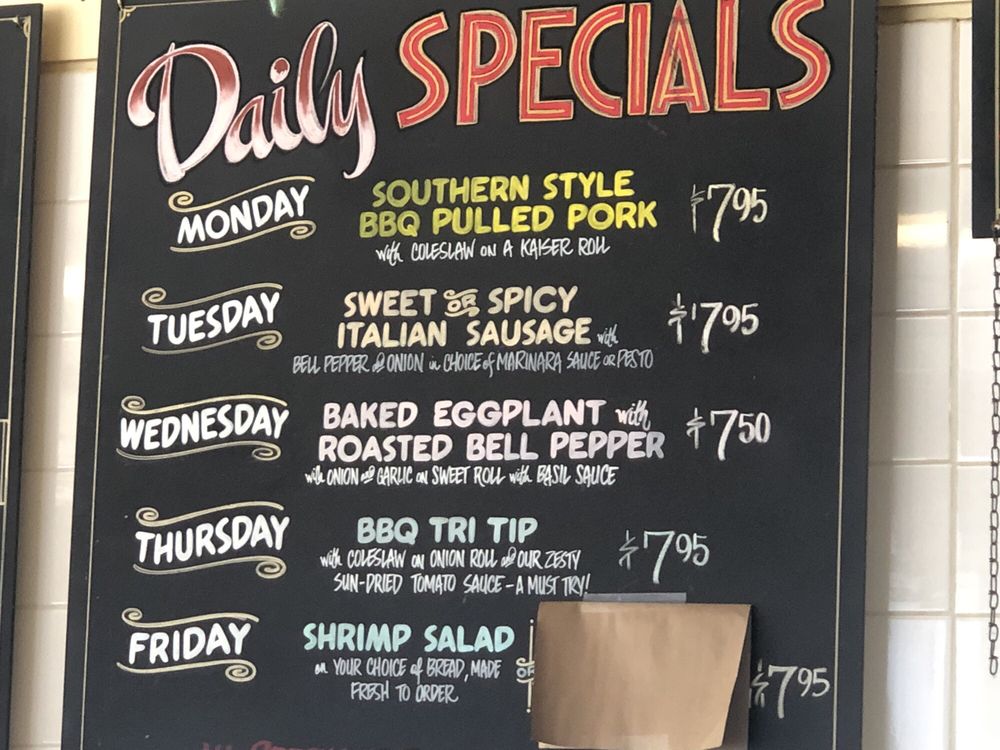 Daily SPECIALS
MONDAY
SOUTHERN STYLE
BBQ PULLED PORK
with COLESLAW ON A KAISER ROLL
$7.95
TUESDAY
SWEET OR SPICY
ITALIAN SAUSAGE with
BELL PEPPER & ONION in CHOICE of MARINARA SAUCE OR PESTO
$7.95
WEDNESDAY
BAKED EGGPLANT with
ROASTED BELL PEPPER
with ONION and GARLIC on SWEET ROLL with BASIL SAUCE
$7.50
THURSDAY
BBQ TRI TIP
with COLESLAW on ONION ROLL and OUR ZESTY
SUN-DRIED TOMATO SAUCE - A MUST TRY!
$7.95
FRIDAY
SHRIMP SALAD
on YOUR CHOICE of BREAD, MADE
FRESH TO ORDER
OR
$7.95